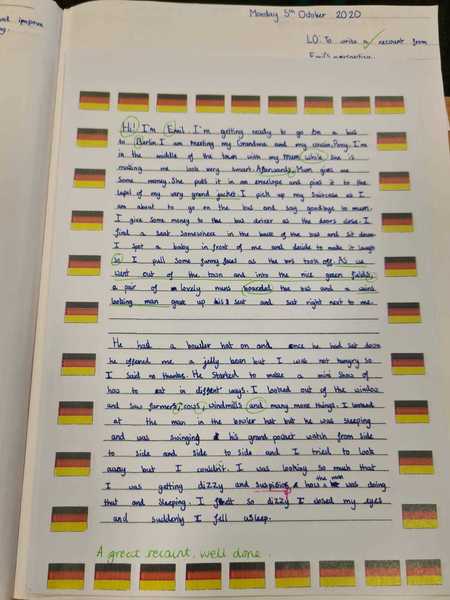 Monday 5th October 2020
LO: To write a recount from
Emil's perspective
Hi! I'm Emil. I'm getting ready to go on a bus
to Berlin. I am meeting my Grandma and my cousin, Pony. I'm
in the middle of the town with my mum while she is
making me look very smart. Afterwards, Mum gives me
some money. She puts it in an envelope and pins it to the
lapel of my very grand jacket. I pick up my suitcase as I
am about to go on the bus and say goodbye to mum.
I give some money to the bus driver as the doors close. I
find a seat somewhere in the back of the bus and sit down.
I spot a baby in front of me and decide to make it laugh
so I pull some funny faces as the bus took off. As we
went out of the town and into the nice green fields,
a pair of lovely nuns boarded the bus and a
looking man gave up his seat and sat right next to me.
He had a bowler hat on and once he had sat down
he offered me a jelly bean but I was not hungry so
I said no thanks. He started to make a mini show of
how to eat in diffrent ways. I looked out of the window
and saw farmers, cows, windmills and many more things. I looked
at the man in the bowler hat but he was sleeping
and was swinging his grand pocket watch from side
to side and side to side and I tried to look
away but I couldn't. I was looking so much that
I was getting dizzy and how the man was doing
that and sleeping. I felt so dizzy I closed my eyes
and suddenly I fell asleep.
A great recount, well done.